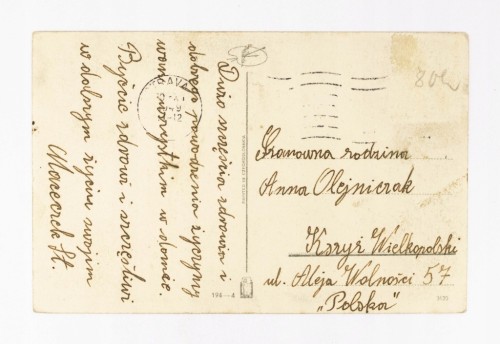 Dużo szczęścia zdrowia i
dobrego powodzenia życzymy
wam wszystkim w domie.
Bądźcie zdrowi i szczęśliwi
w dobrym życiu swojim
Wąsorek St.
Szanowna rodzina
Anna Olejniczak
Krzyż Wielkopolski
ul. Aleja Wolności 57
"Polska"
194—4